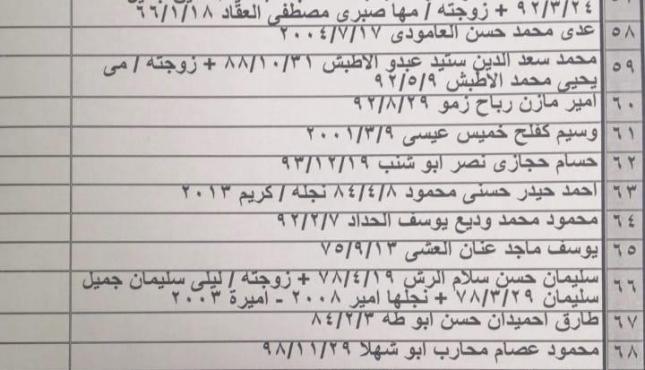 ٩٢/٣/٢٤ + زوجته / مها صبرى مصطفى العقاد ٦٦/١/١٨
٥٨ عدى محمد حسن العامودى ٢٠٠٤/٧/١٧
٥٩ محمد سعد الدين ستيد عبدو الاطبش ٨٨/١٠/٣١ + زوجته / مى
يحيى محمد الاطبش ٩٢/٥/٩
٦٠ امير مازن رباح زمو ٩٢/٨/٢٩
٦١ وسيم كفلح خميس عيسى ٢٠٠١/٣/٩
٦٢ حسام حجازى نصر ابو شنب ٩٣/١٢/١٩
٦٣ احمد حيدر حسنى محمود ٨٤/٤/٨ نجله / كريم ٢٠١٣
٦٤ محمود محمد وديع يوسف الحداد ٩٢/٢/٧
٦٥ يوسف ماجد عنان العشى ٧٥/٩/١٣
٦٦ سليمان حسن سلام الرش ٧٨/٤/١٩ + زوجته / ليلى سليمان جميل
سليمان ٧٨/٣/٢٩ + نجلها امير ٢٠٠٨ - اميرة ٢٠٠٣
٦٧ طارق احميدان حسن ابو طه ٨٤/٢/٣
٦٨ محمود عصام محارب ابو شهلا ٩٨/١١/٢٩